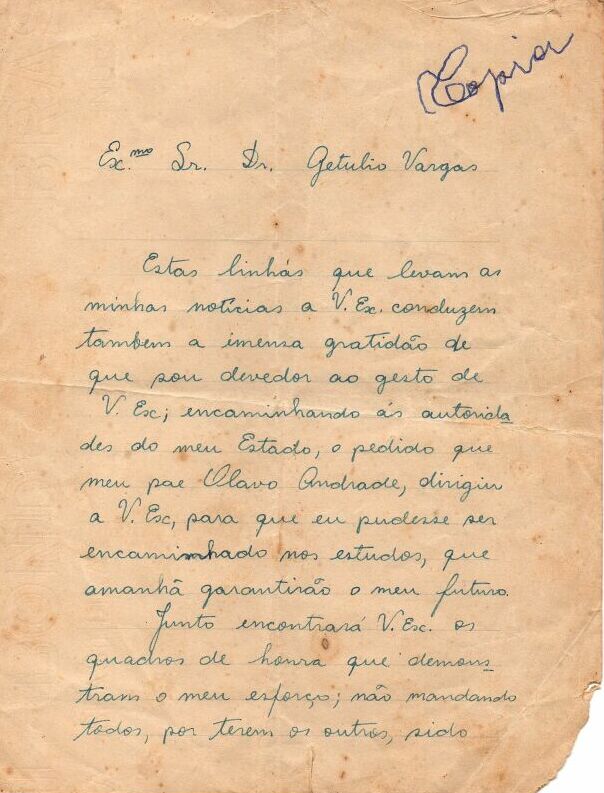 Copiar
Ex.mo Sr. Dr. Getulio Vargas
Estas linhás que levam as
minhas notícias a V. Ex. conduzem
tambem a imensa gratidão de
que sou devedor ao gesto de
V. Ex; encaminhando ás autorida
des do meu Estado, o pedido que
meu pae Olavo Andrade, dirigiu
a V. Ex, para que eu pudesse ser
encaminhado nos estudos, que
amanhã garantirão o meu futuro.
Junto encontrará V. Ex. os
quadros de honra que demons
tram o meu esforço; não mandando
todos, por terem os outros, sido